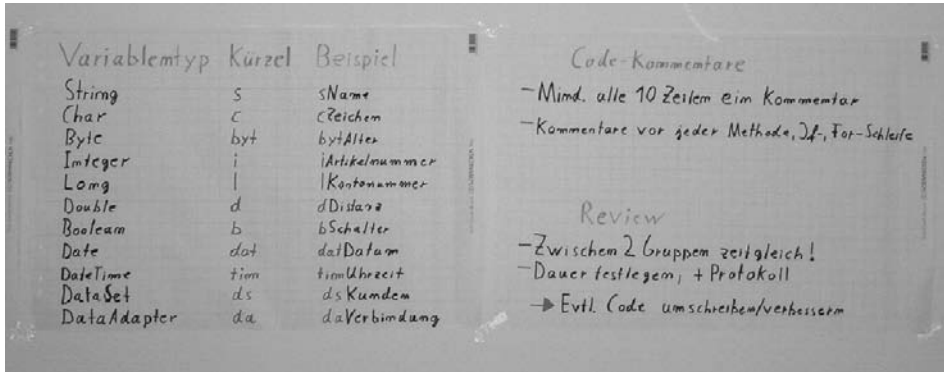 Variablentyp Kürzel Beispiel
String s sName
Char c cZeichen
Byte byt bytAlter
Integer i iArtikelnummer
Long l lKontonummer
Double d dDistanz
Boolean b bSchalter
Date dat datDatum
DateTime tim timUhrzeit
DataSet ds dsKunden
DataAdapter da daVerbindung
Code-Kommentare
- Mind. alle 10 Zeilen ein Kommentar
- Kommentare vor jeder Methode, If-, For-Schleife
Review
- Zwischen 2 Gruppen zeitgleich!
- Dauer festlegen, + Protokoll
→ Evtl. Code umschreiben/verbessern